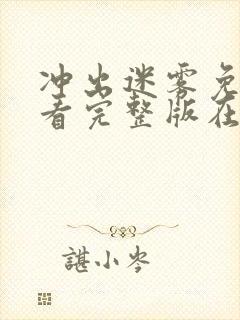 冲出迷雾免
看完整版在
諶小岑